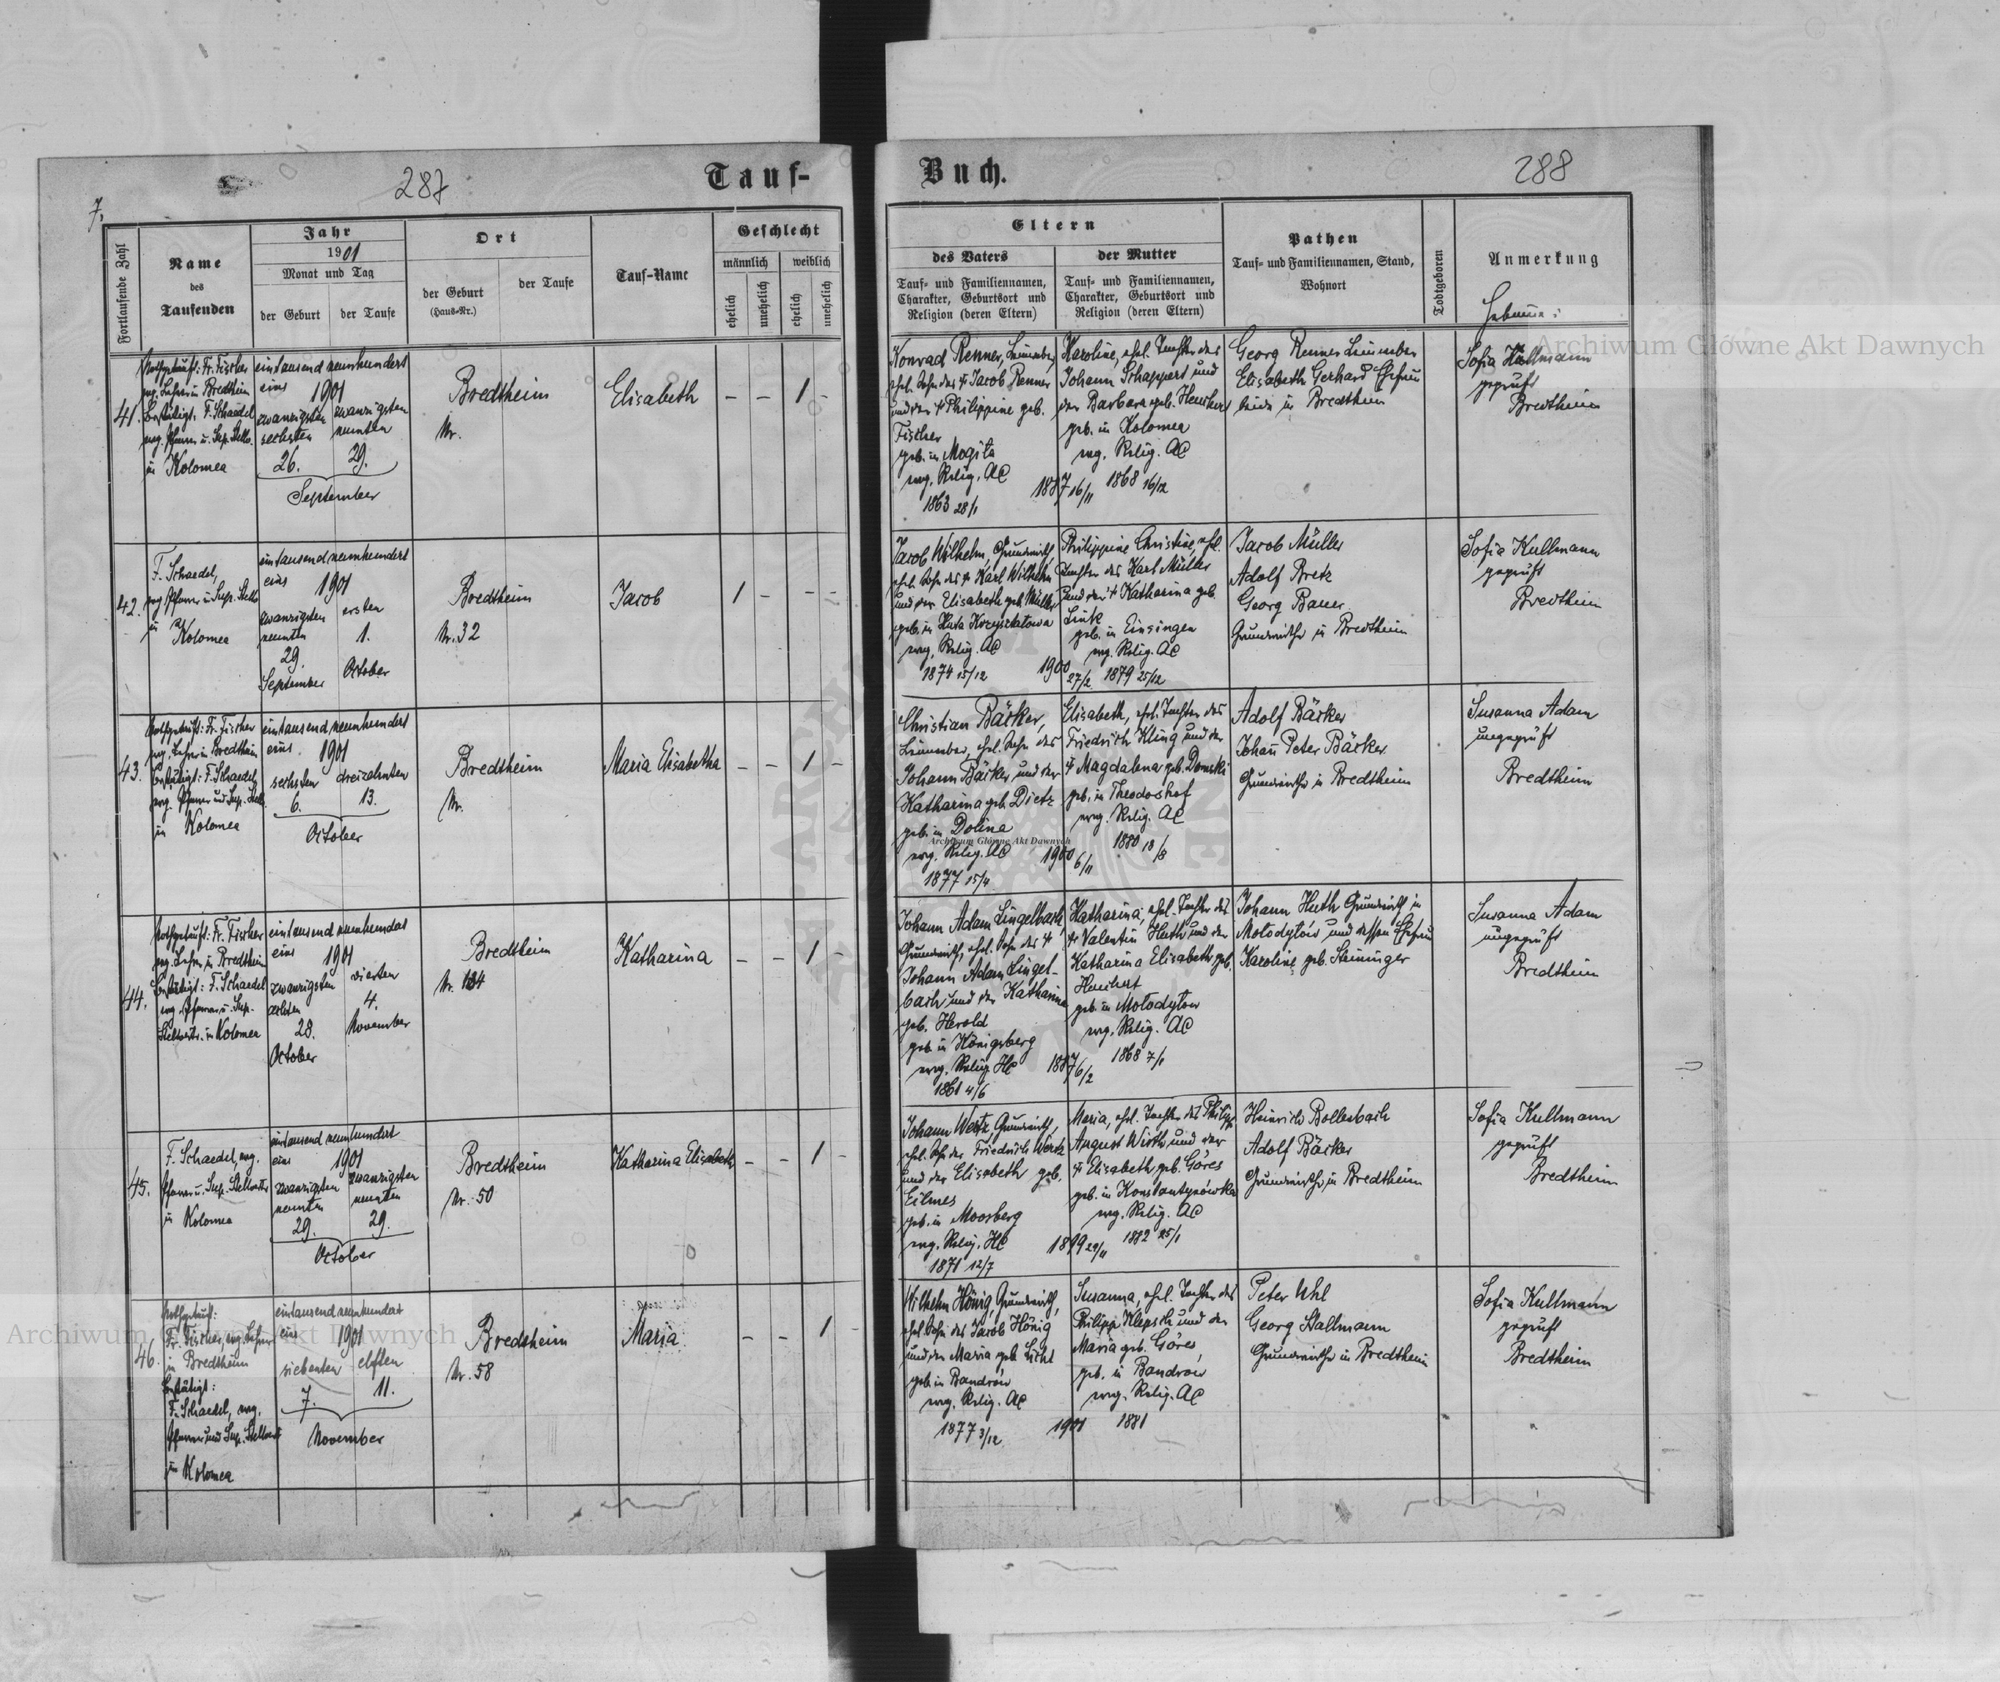 287
Tauf-
Buch.
288
7.
Fortlaufende Zahl
Name
des
Taufenden
Jahr
1901
Monat und Tag
der Geburt
der Taufe
Ort
der Geburt
(Haus-Nr.)
der Taufe
Tauf-Name
Geschlecht
männlich
weiblich
ehelich
unehelich
ehelich
unehelich
Eltern
des Vaters
Tauf- und Familiennamen,
Charakter, Geburtsort und
Religion (deren Eltern)
der Mutter
Tauf- und Familiennamen,
Charakter, Geburtsort und
Religion (deren Eltern)
Pathen
Tauf- und Familiennamen, Stand,
Wohnort
Todtgeboren
Anmerkung
Hebamme:
41.
Nothgetauft: Fr. Fischer
evg. Lehrer in Bredtheim
Bestätigt: F. Schaedel
evg. Pfarrer u. Sup. Stellv.
in Kolomea
eintausend neunhundert
eins 1901
zwanzigsten zwanzigsten
sechsten neunten
26. 29.
September
Bredtheim
Nr.
Elisabeth
– – 1 –
Konrad Renner,
ehel. Sohn des † Jacob Renner
und der † Philippine geb.
Fischer
geb. in Mogila
evg. Relig. AC
1863 28/1
1887 16/11
Karoline, ehel. Tochter des
Johann Schappert und
der Barbara geb.
geb. in Kolomea
evg. Relig. AC
1868 16/12
Georg Renner
Elisabeth Gerhard Ehefrau
beide in Bredtheim
Sofia Kullmann
geprüft
Bredtheim
42.
F. Schaedel,
evg. Pfarrer u. Sup. Stellv.
in
Kolomea
eintausend neunhundert
eins 1901
zwanzigsten ersten
neunten 1.
29.
September October
Bredtheim
Nr. 32
Jacob
1 – – –
Jacob Wilhelm, Grundwirth,
ehel. Sohn des † Karl Wilhelm
und der Elisabeth geb. Müller
geb. in Huta Krzyształowa
evg. Relig. AC
1874 15/12
1900 27/2
Philippine Christine, ehel.
Tochter des Karl Müller
und der † Katharina geb.
Link
geb. in Einsingen
evg. Relig. AC
1879 25/12
Jacob Müller
Adolf Bretz
Georg Bauer
Grundwirthe in Bredtheim
Sofia Kullmann
geprüft
Bredtheim
43.
Nothgetauft: Fr. Fischer
evg. Lehrer in Bredtheim
Bestätigt: F. Schaedel,
evg. Pfarrer und Sup. Stellv.
in Kolomea
eintausend neunhundert
eins 1901
sechsten dreizehnten
6. 13.
October
Bredtheim
Nr.
Maria Elisabetha
– – 1 –
Christian Bäcker,
ehel. Sohn des
Johann Bäcker und der
Katharina geb. Dietz
geb. in Dolina
evg. Relig. AC
1877 15/4
1900 6/11
Elisabeth, ehel. Tochter des
Friedrich Kling und der
† Magdalena geb. Domski
geb. in Theodorshof
evg. Relig. AC
1880 18/8
Adolf Bäcker
Johann Peter Bäcker
Grundwirthe in Bredtheim
Susanna Adam
ungeprüft
Bredtheim
44.
Nothgetauft: Fr. Fischer
evg. Lehrer in Bredtheim
Bestätigt: F. Schaedel
evg. Pfarrer u. Sup.
Stellvertr. in Kolomea
eintausend neunhundert
eins 1901
zwanzigsten vierten
achten 4.
28. November
October
Bredtheim
Katharina
– – 1 –
Johann Adam Lingelbach,
Grundwirth, ehel. Sohn des †
Johann Adam Lingel-
bach und der Katharina
geb. Herold
geb. in Königsberg
evg. Relig. HC
1861 4/6
1887 6/2
Katharina, ehel. Tochter des
† Valentin Huth und der
Katharina Elisabeth geb.
geb. in Mołodyłow
evg. Relig. AC
1868 7/1
Johann Huth Grundwirth in
Mołodyłów und dessen Ehefrau
Karoline geb. Steininger
Susanna Adam
ungeprüft
Bredtheim
45.
F. Schaedel, evg.
Pfarrer u. Sup. Stellvertr.
in Kolomea
eintausend neunhundert
eins 1901
zwanzigsten zwanzigsten
neunten neunten
29. 29.
October
Bredtheim
Nr. 50
Katharina Elisabeth
– – 1 –
Johann Wertz, Grundwirth,
ehel. Sohn des Friedrich Wertz
und der Elisabeth geb.
Eilmes
geb. in Moosberg
evg. Relig. HC
1871 12/7
1899 29/11
Maria, ehel. Tochter des Philipp
August Wirth und der
† Elisabeth geb. Göres
geb. in Konstantynówka
evg. Relig. AC
1882 25/1
Heinrich Bollenbach
Adolf Bäcker
Grundwirthe in Bredtheim
Sofia Kullmann
geprüft
Bredtheim
46.
Nothgetauft:
Fr. Fischer, evg. Lehrer
in Bredtheim
Bestätigt:
F. Schaedel, evg.
Pfarrer und Sup. Stellvertr.
in Kolomea
eintausend neunhundert
eins 1901
siebenten elften
7. 11.
November
Bredtheim
Nr. 58
Maria
– – 1 –
Wilhelm Hönig, Grundwirth,
ehel. Sohn des Jacob Hönig
und der Maria geb. Licht
geb. in Bandrów
evg. Relig. AC
1877 3/12
1901
Susanna, ehel. Tochter des
Philipp Klepsch und der
Maria geb. Göres
geb. in Bandrów
evg. Relig. AC
1881
Peter Uhl
Georg Stallmann
Grundwirthe in Bredtheim
Sofia Kullmann
geprüft
Bredtheim
Archiwum Główne Akt Dawnych
Archiwum Główne Akt Dawnych
Archiwum Główne Akt Dawnych